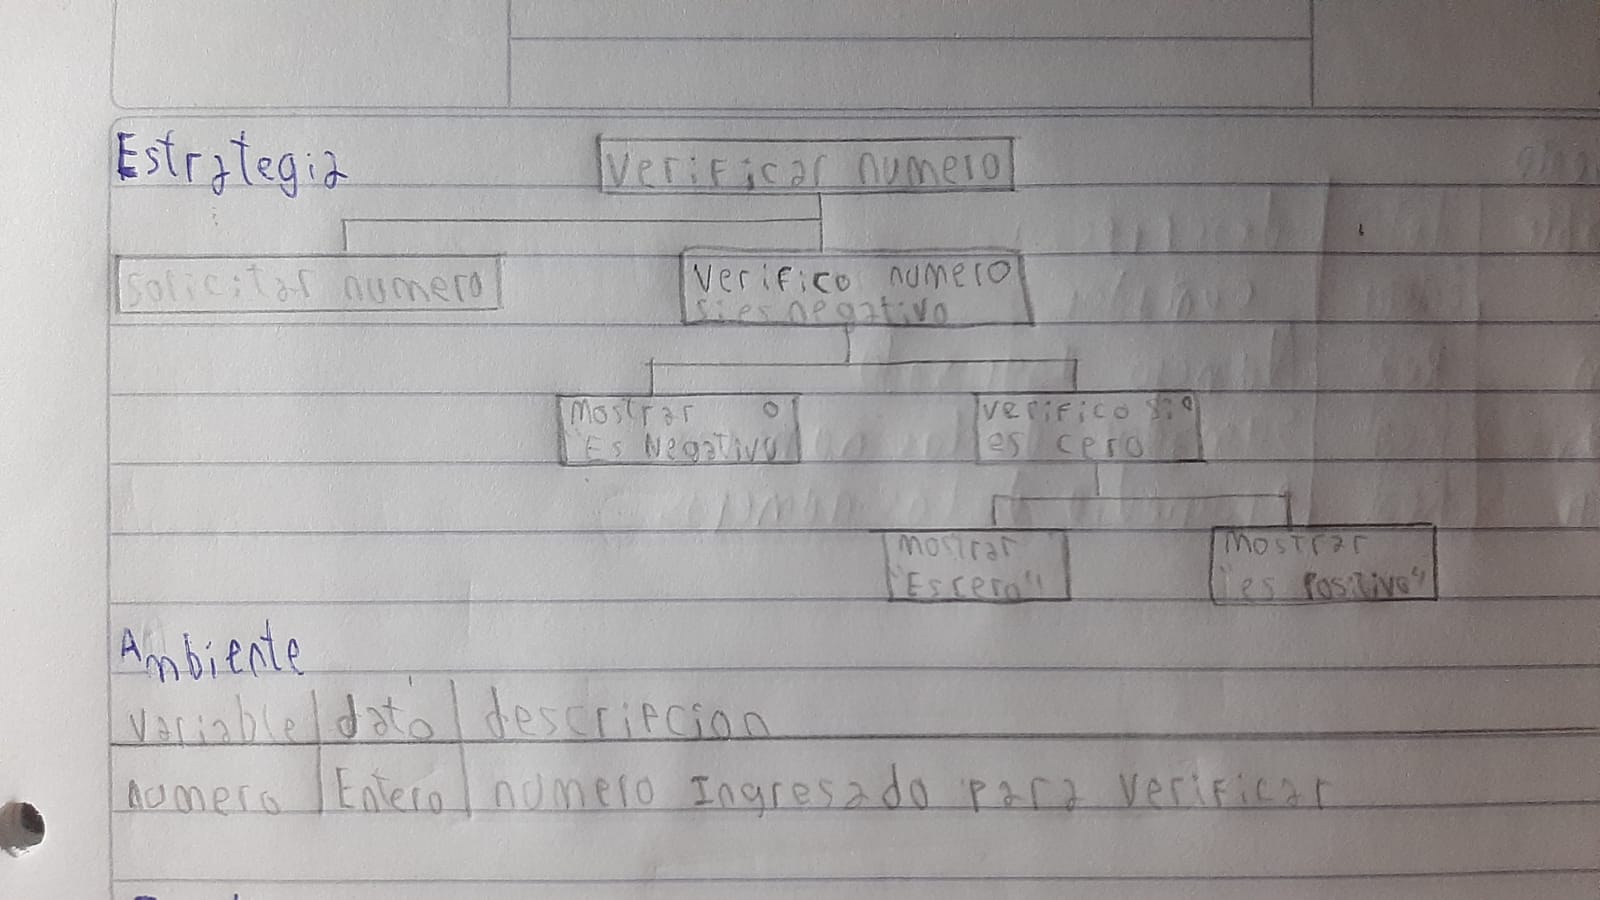 Estrategia
verificar numero
solicitar numero
verifico numero
si es negativo
Mostrar o
"Es Negativo
verifico si o
es cero
mostrar
"Es cero"
mostrar
"es Positivo"
Ambiente
variable dato descripcion
numero Entero numero Ingresado para verificar